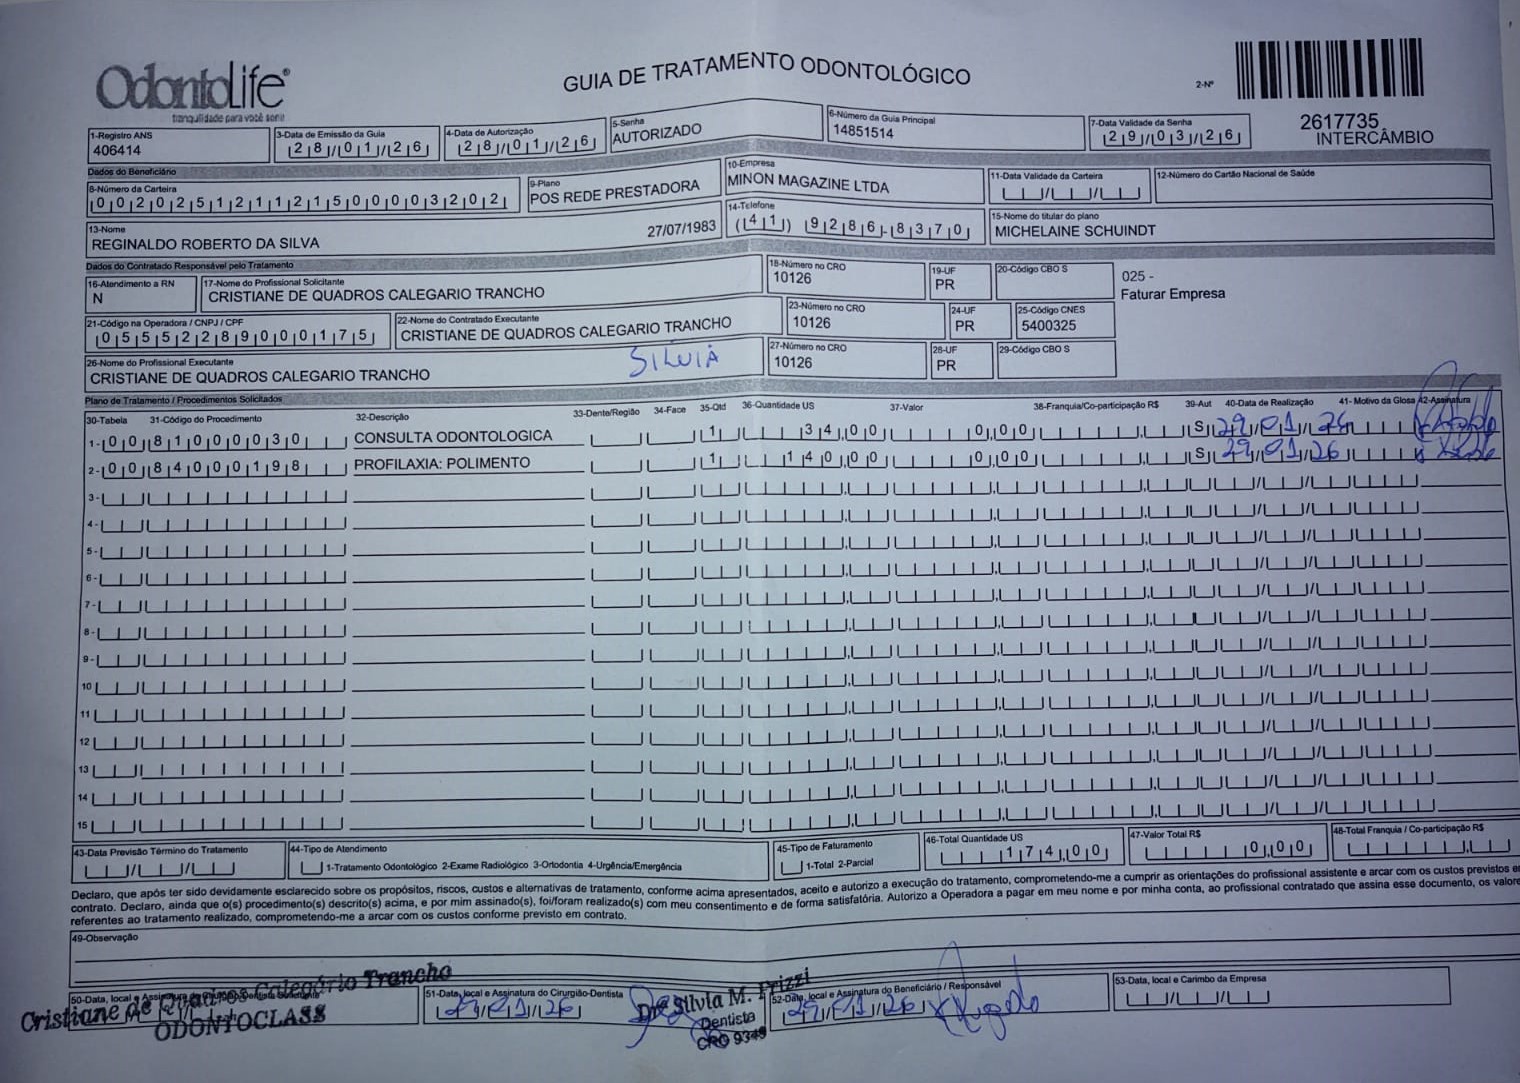 OdontoLife®
tranquilidade para você sorrir
GUIA DE TRATAMENTO ODONTOLÓGICO
2-Nº
2617735
INTERCÂMBIO
1-Registro ANS
406414
3-Data de Emissão da Guia
28/01/26
4-Data de Autorização
28/01/26
5-Senha
AUTORIZADO
6-Número da Guia Principal
14851514
7-Data Validade da Senha
29/03/26
Dados do Beneficiário
8-Número da Carteira
002025121121500003202
9-Plano
POS REDE PRESTADORA
10-Empresa
MINON MAGAZINE LTDA
11-Data Validade da Carteira
12-Número do Cartão Nacional de Saúde
13-Nome
REGINALDO ROBERTO DA SILVA 27/07/1983
14-Telefone
(41) 9286-8370
15-Nome do titular do plano
MICHELAINE SCHUINDT
Dados do Contratado Responsável pelo Tratamento
16-Atendimento a RN
N
17-Nome do Profissional Solicitante
CRISTIANE DE QUADROS CALEGARIO TRANCHO
18-Número no CRO
10126
19-UF
PR
20-Código CBO S
025 -
Faturar Empresa
21-Código na Operadora / CNPJ / CPF
05552289000175
22-Nome do Contratado Executante
CRISTIANE DE QUADROS CALEGARIO TRANCHO
23-Número no CRO
10126
24-UF
PR
25-Código CNES
5400325
26-Nome do Profissional Executante
CRISTIANE DE QUADROS CALEGARIO TRANCHO
SILVIA
27-Número no CRO
10126
28-UF
PR
29-Código CBO S
Plano de Tratamento / Procedimentos Solicitados
30-Tabela 31-Código do Procedimento 32-Descrição 33-Dente/Região 34-Face 35-Qtd 36-Quantidade US 37-Valor 38-Franquia/Co-participação R$ 39-Aut 40-Data de Realização 41- Motivo da Glosa 42-Assinatura
1- 00 81000030 CONSULTA ODONTOLOGICA 1 34,00 0,00 S 29/01/26
2- 00 84000198 PROFILAXIA: POLIMENTO 1 140,00 0,00 S 29/01/26
3-
4-
5-
6-
7-
8-
9-
10
11
12
13
14
15
43-Data Previsão Término do Tratamento
44-Tipo de Atendimento
1-Tratamento Odontológico 2-Exame Radiológico 3-Ortodontia 4-Urgência/Emergência
45-Tipo de Faturamento
1-Total 2-Parcial
46-Total Quantidade US
174,00
47-Valor Total R$
0,00
48-Total Franquia / Co-participação R$
Declaro, que após ter sido devidamente esclarecido sobre os propósitos, riscos, custos e alternativas de tratamento, conforme acima apresentados, aceito e autorizo a execução do tratamento, comprometendo-me a cumprir as orientações do profissional assistente e arcar com os custos previstos em
contrato. Declaro, ainda que o(s) procedimento(s) descrito(s) acima, e por mim assinado(s), foi/foram realizado(s) com meu consentimento e de forma satisfatória. Autorizo a Operadora a pagar em meu nome e por minha conta, ao profissional contratado que assina esse documento, os valores
referentes ao tratamento realizado, comprometendo-me a arcar com os custos conforme previsto em contrato.
49-Observação
50-Data, local e Assinatura do
Cristiane de Quadros Calegário Trancho
ODONTOCLASS
51-Data, local e Assinatura do Cirurgião-Dentista
29/01/26
Drª Silvia M. Frizzi
Dentista
CRO 9349
52-Data, local e Assinatura do Beneficiário / Responsável
29/01/26
53-Data, local e Carimbo da Empresa